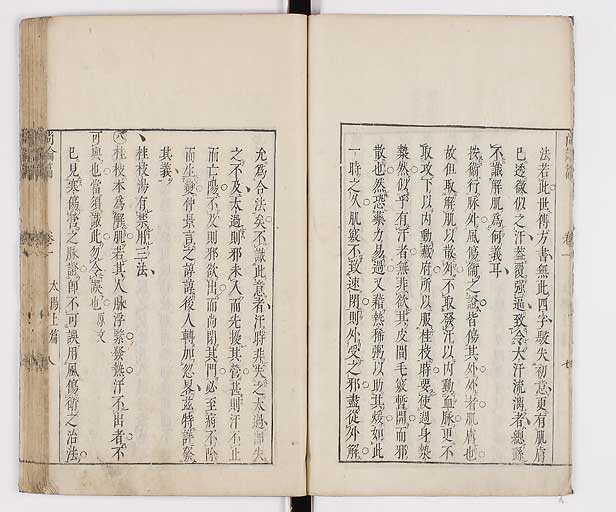 法若此世傳方書無此四字駁失初意更有肌膚
已透微似之汗蓋覆强逼致令大汗流漓者總縁
不識解肌爲何義耳
按衛行脉外風傷衛之證皆傷其外外者肌膚也
故但取解肌以散外不取發汗以内動血脉更不
取攻下以内動藏府所以服桂枝時要使遍身漐
漐然似乎有汗者無非欲其皮間毛竅暫開而邪
散也然恐藥力易過又藉熱稀粥以助其煖如此
一時之久肌竅不致速閉則外受之邪盡從外解
允爲合法矣不識此意者汗時非失之太過卽失
之不及太過則邪未入而先擾其營甚則汗不止
而亡陽不及則邪欲出而尚閉其門必至病不除
而生變仲景言之諄諄後人轉加忽畧兹特詳發
其義
桂枝湯有禁用三法
八桂枝本爲解肌若其人脉浮緊發熱汗不出者不
可與也當須識此勿令誤也原文
已見寒傷營之脉證卽不可誤用風傷衛之治法
尚論篇
卷一
太陽上篇
八